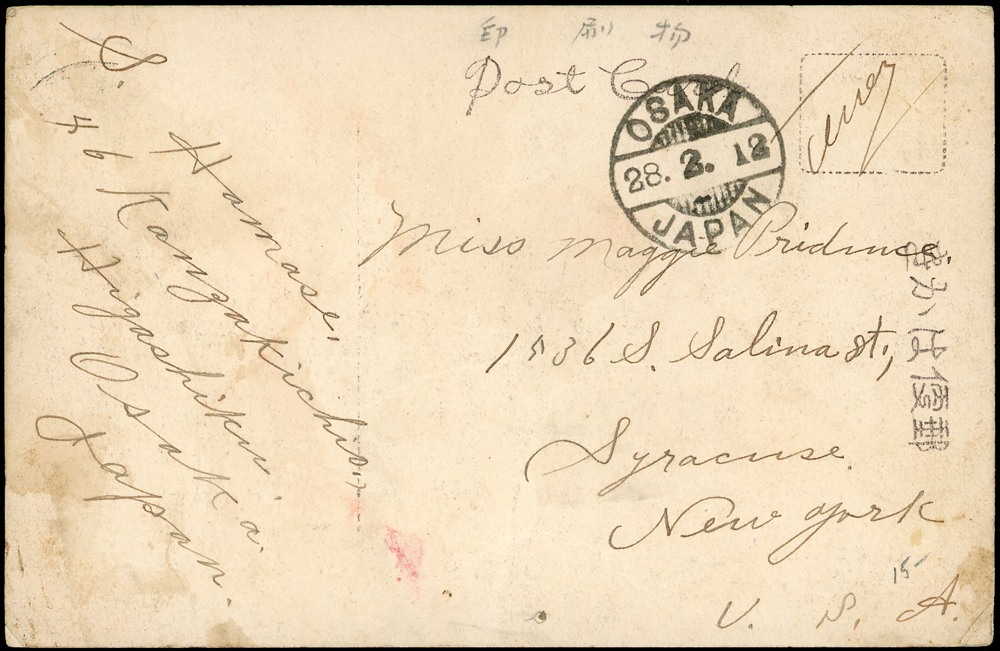 印刷物
Post Card
OSAKA
28. 2. 12
JAPAN
郵便はかき
S. Hamase,
46 Kanzakicho,
Higashiku.
Osaka.
Japan.
Miss Maggie
1536 S. Salina st,
Syracuse
New York
U. S. A.
15-